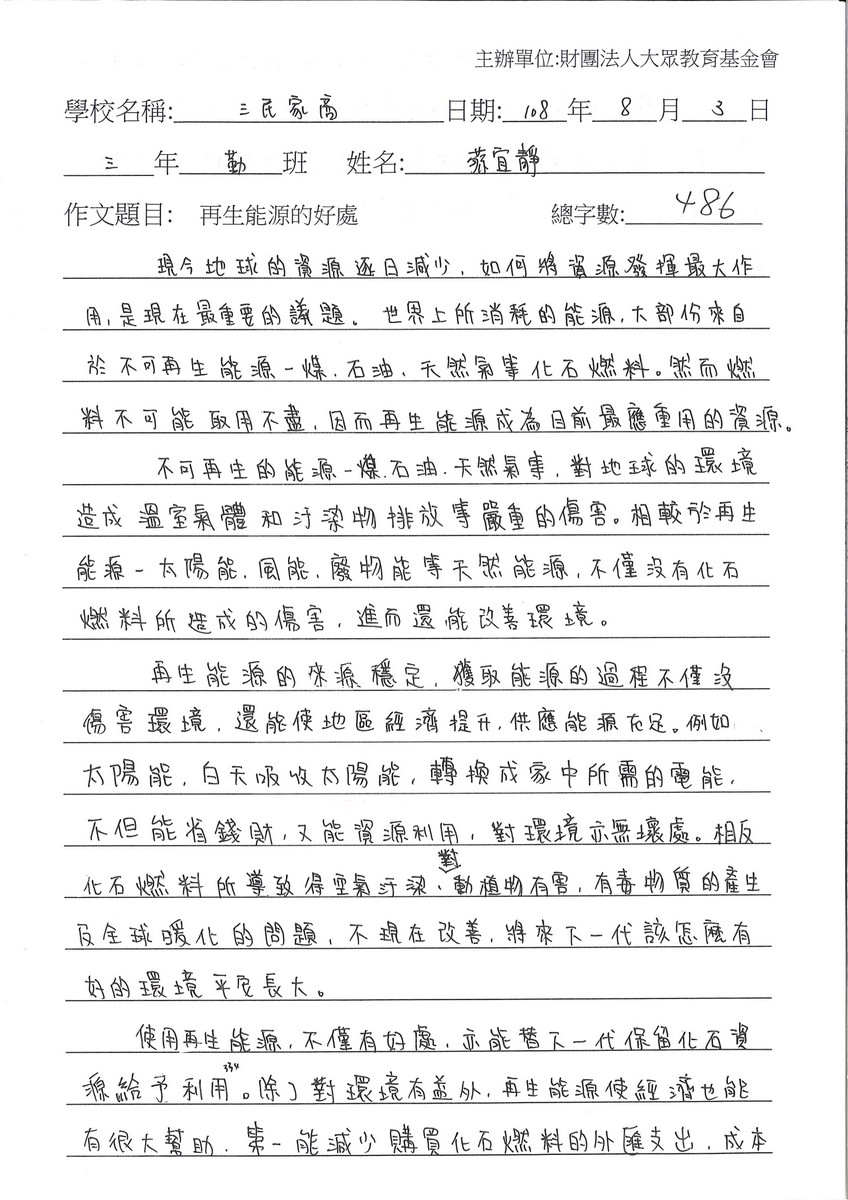 主辦單位:財團法人大眾教育基金會
學校名稱: 三民家商 日期: 108 年 8 月 3 日
三 年 勤 班 姓名: 蔡宜靜
作文題目: 再生能源的好處 總字數: 486
現今地球的資源逐日減少，如何將資源發揮最大作
用，是現在最重要的議題。世界上所消耗的能源，大部份來自
於不可再生能源－煤、石油、天然氣等化石燃料。然而燃
料不可能取用不盡，因而再生能源成為目前最應重用的資源。
不可再生的能源－煤、石油、天然氣等，對地球的環境
造成溫室氣體和汙染物排放等嚴重的傷害。相較於再生
能源－太陽能、風能、廢物能等天然能源，不僅沒有化石
燃料所造成的傷害，進而還能改善環境。
再生能源的來源穩定，獲取能源的過程不僅沒
傷害環境，還能使地區經濟提升，供應能源充足。例如
太陽能，白天吸收太陽能，轉換成家中所需的電能，
不但能省錢財，又能資源利用，對環境亦無壞處。相反
化石燃料所導致得空氣汙染、對動植物有害，有毒物質的產生
及全球暖化的問題，不現在改善，將來下一代該怎麼有
好的環境平安長大。
使用再生能源，不僅有好處，亦能替下一代保留化石資
源給予利用。除了對環境有益外，再生能源使經濟也能
334
有很大幫助，第一能減少購買化石燃料的外匯支出，成本